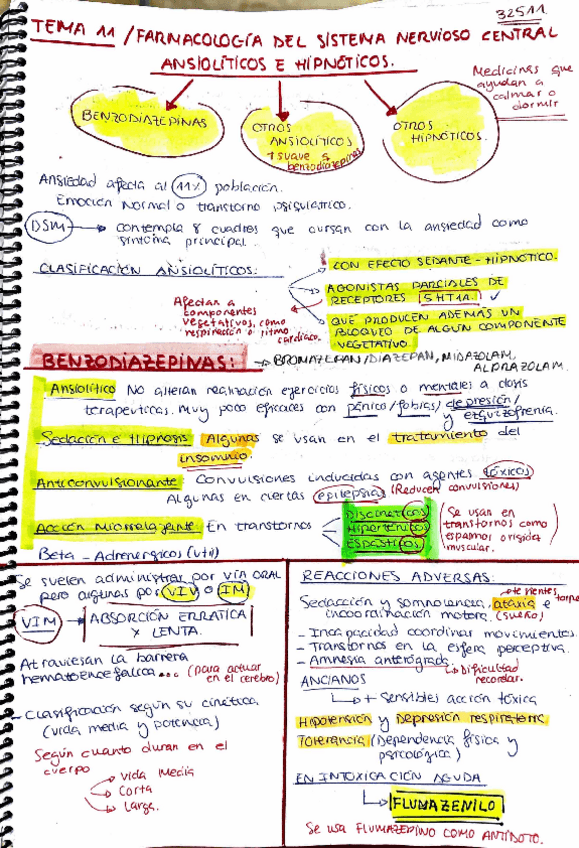 32511.
TEMA 11 / FARMACOLOGÍA DEL SISTEMA NERVIOSO CENTRAL
ANSIOLÍTICOS E HIPNÓTICOS.
Medicinas que
ayudan a
calmar o
dormir
BENZODIAZEPINAS
OTROS
ANSIOLÍTICOS
+ suave
benzodiazepinas
OTROS
HIPNÓTICOS.
Ansiedad afecta al 11% población.
Emoción normal o transtorno psiquiatrico.
DSM → contempla 8 cuadros que cursan con la ansiedad como
síntoma principal.
CLASIFICACIÓN ANSIOLÍTICOS:
CON EFECTO SEDANTE-HIPNÓTICO.
AGONISTAS PARCIALES DE
RECEPTORES 5HT1A. ✓
QUE PRODUCEN ADEMÁS UN
BLOQUEO DE ALGÚN COMPONENTE
VEGETATIVO
Afectan a
componentes
vegetativos, como
respiración o ritmo
cardíaco.
BENZODIAZEPINAS: → BROMAZEPAN/DIAZEPAN, MIDAZOLAM,
ALPRAZOLAM.
Ansiolítico No alteran realización ejercicios físicos o mentales a dosis
terapeuticas. Muy poco eficaces con pánico/fobias/depresión/
y esquizofrenia.
Sedación e Hipnosis Algunas se usan en el tratamiento del
insomnio.
Anticonvulsionante: Convulsiones inducidas con agentes tóxicos
Algunas en ciertas epilepsias (Reducen convulsiones)
Acción Miorrelajante En transtornos
Discinéticos
Hipertónicos
Espásticos
(Se usan en
transtornos como
espasmos o rigidez
muscular.
Beta-Adrenergicos (util)
Se suelen administrar por VÍA ORAL
pero algunas por VIV o IM
VIM → ABSORCIÓN ERRATICA
Y LENTA.
Atraviesan la barrera
hematoencefalica... (para actuar
en el cerebro)
- Clasificación según su cinética
(vida media y potencia)
Según cuanto duran en el
cuerpo
→ vida Media
→ Corta
→ Larga.
REACCIONES ADVERSAS:
Sedacción y somnolencia, ataxia e
incoordinación motora. (sueño)
torpe
- Incapacidad coordinar movimientos.
- Transtornos en la esfera perceptiva.
- Amnesia anterógrada.
↳ Dificultad
recordar.
ANCIANOS
↳ + Sensibles acción tóxica
Hipotensión y Depresión respiratoria
Tolerancia (Dependencia física y
psicológica)
EN INTOXICACIÓN AGUDA
↳ FLUMAZENILO
Se usa FLUMAZEPINO COMO ANTÍDOTO.